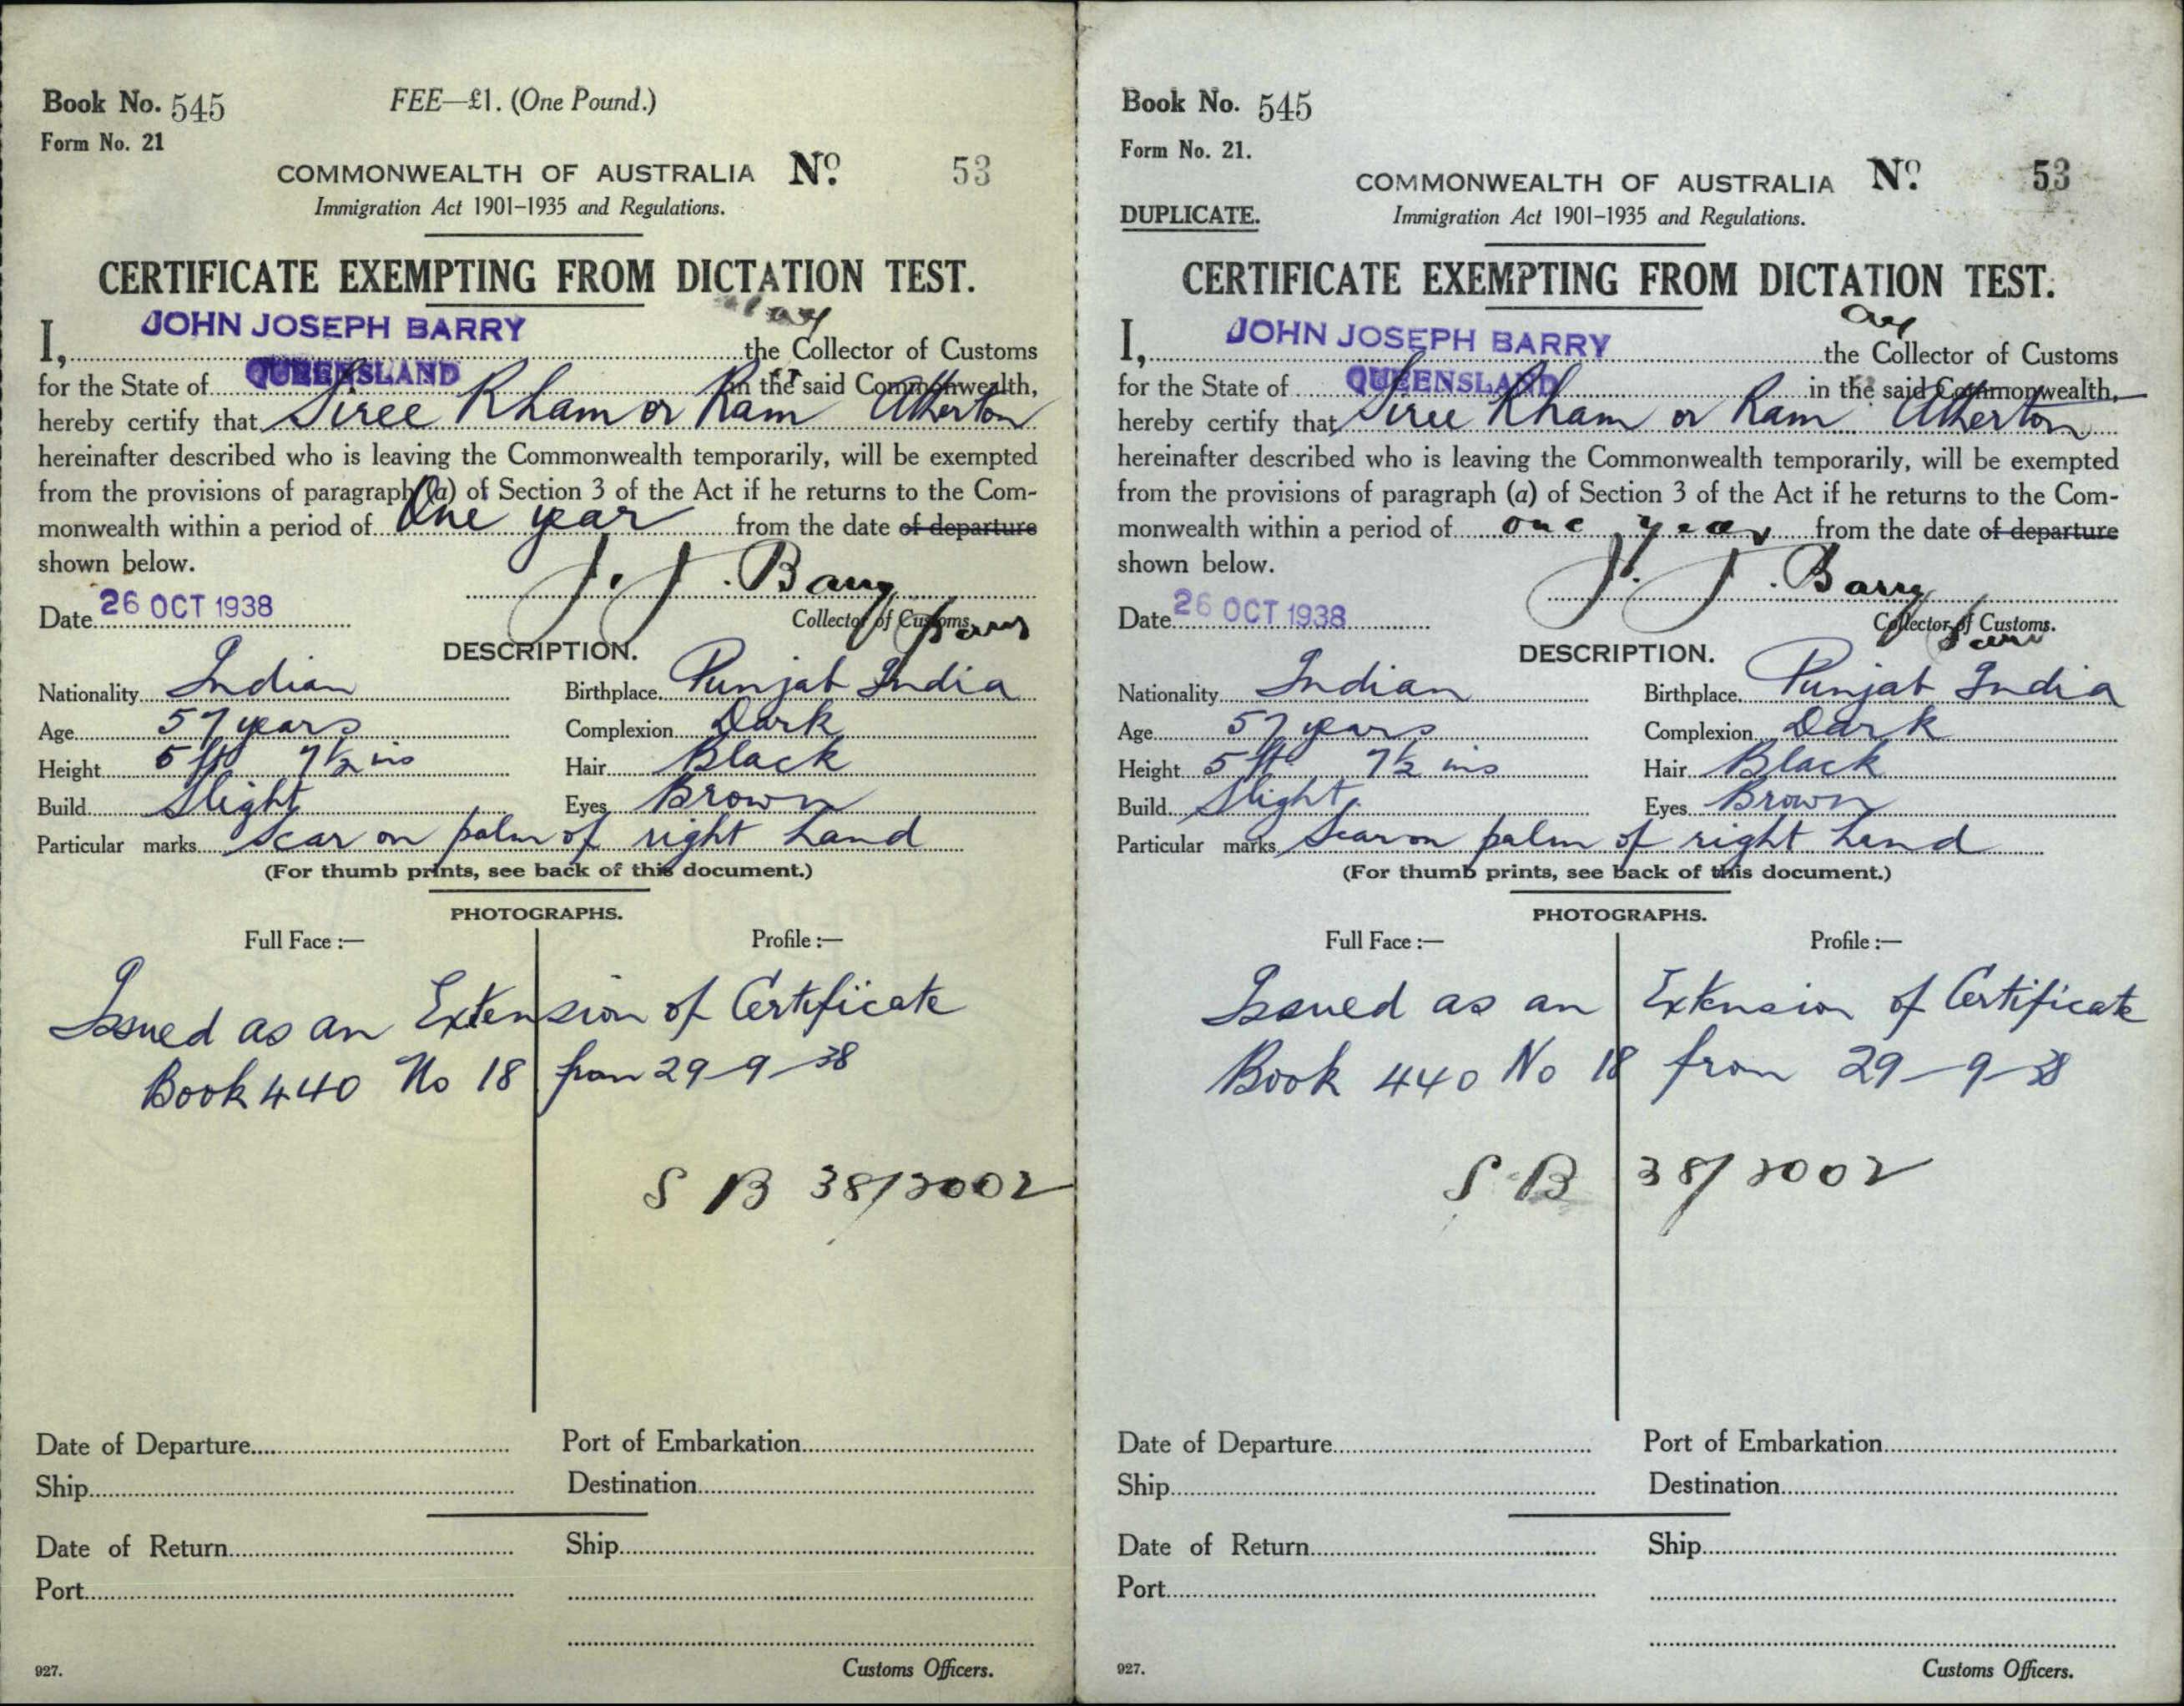 Book No. 545
FEE—£1. (One Pound.)
Form No. 21
COMMONWEALTH OF AUSTRALIA No. 53
Immigration Act 1901–1935 and Regulations.
CERTIFICATE EXEMPTING FROM DICTATION TEST.
JOHN JOSEPH BARRY
I, the Collector of Customs
for the State of QUEENSLAND in the said Commonwealth,
hereby certify that Siree Kham or Ram Atherton
hereinafter described who is leaving the Commonwealth temporarily, will be exempted
from the provisions of paragraph (a) of Section 3 of the Act if he returns to the Com-
monwealth within a period of One year from the date of departure
shown below.
J. J. Barry
Date 26 OCT 1938
Collector of Customs.
DESCRIPTION.
Nationality Indian Birthplace Punjab India
Age 57 years Complexion Dark
Height 5 ft 7½ ins Hair Black
Build Slight Eyes Brown
Particular marks Scar on palm of right hand
(For thumb prints, see back of this document.)
PHOTOGRAPHS.
Full Face :— Profile :—
Issued as an Extension of Certificate
Book 440 No 18 from 29-9-38
S B 38/3002
Date of Departure Port of Embarkation
Ship Destination
Date of Return Ship
Port
927. Customs Officers.
Book No. 545
Form No. 21.
COMMONWEALTH OF AUSTRALIA No. 53
DUPLICATE.
Immigration Act 1901–1935 and Regulations.
CERTIFICATE EXEMPTING FROM DICTATION TEST.
JOHN JOSEPH BARRY
I, the Collector of Customs
for the State of QUEENSLAND in the said Commonwealth,
hereby certify that Siree Kham or Ram Atherton
hereinafter described who is leaving the Commonwealth temporarily, will be exempted
from the provisions of paragraph (a) of Section 3 of the Act if he returns to the Com-
monwealth within a period of one year from the date of departure
shown below.
J. J. Barry
Date 26 OCT 1938
Collector of Customs.
DESCRIPTION.
Nationality Indian Birthplace Punjab India
Age 57 years Complexion Dark
Height 5 ft 7½ ins Hair Black
Build Slight. Eyes Brown
Particular marks Scar on palm of right hand
(For thumb prints, see back of this document.)
PHOTOGRAPHS.
Full Face :— Profile :—
Issued as an Extension of Certificate
Book 440 No 18 from 29-9-38
S. B 38/3002
Date of Departure Port of Embarkation
Ship Destination
Date of Return Ship
Port
927. Customs Officers.